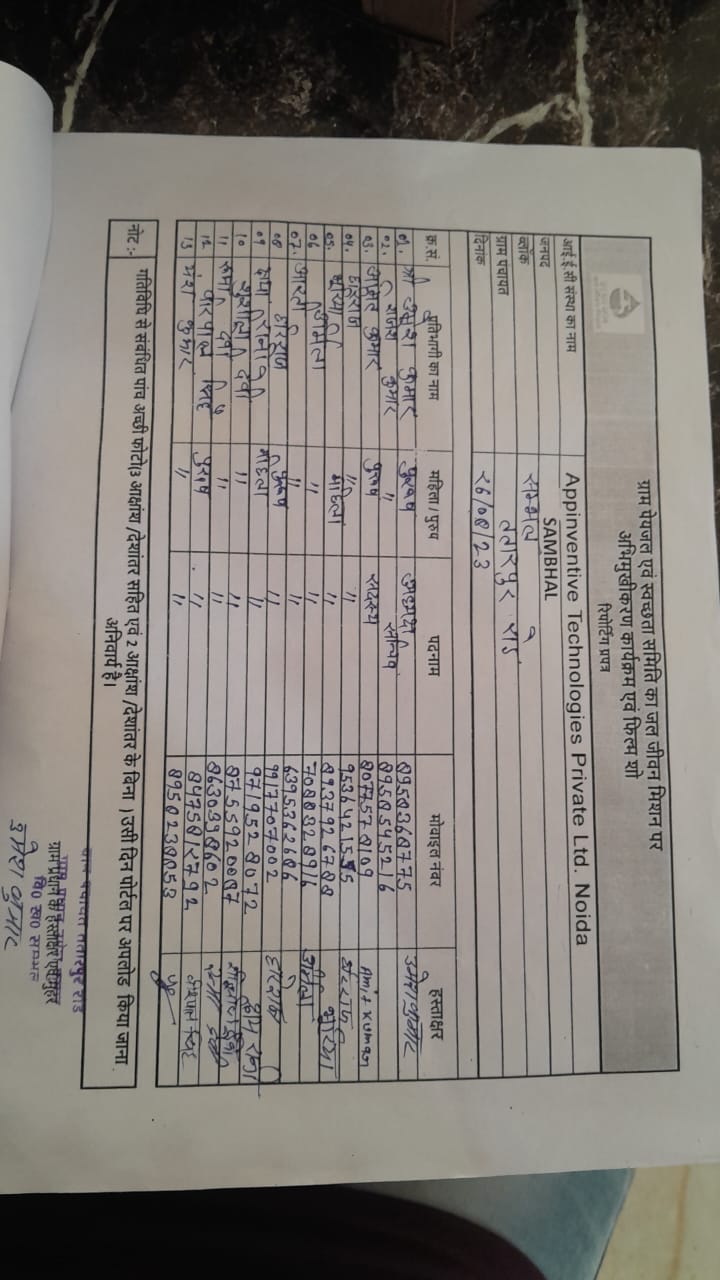 ग्राम पेयजल एवं स्वच्छता समिति का जल जीवन मिशन पर
अभिमुखीकरण कार्यक्रम एवं फिल्म शो
रिपोर्टिंग प्रपत्र
आई.ई.सी संस्था का नाम Appinventive Technologies Private Ltd. Noida
जनपद SAMBHAL
ब्लॉक सम्भल
ग्राम पंचायत ततारपुर रोड
दिनांक २6/08/23
क्र.सं. प्रतिभागी का नाम महिला / पुरुष पदनाम मोबाइल नंबर हस्ताक्षर
01. श्री उमेश कुमार पुरुष अध्यक्ष 8958368775 उमेश कुमार
02. कुमार " सचिव 8958545216
03. अमित कुमार पुरुष सदस्य Amit Kumar
04. " " 9536421555
05. महिला " 8937926788
06 उर्मिला " " 7088328916 उर्मिला
07. आरती " 6395262086
08 पुरुष " 9917707002
09 महिला " 9719528072
10 सुशीला देवी " " 8755920087
11 देवी " " 8630398602
12 सिंह पुरुष " 8475812792
13 कुमार " " 8958238053
नोट :- गतिविधि से संबंधित पांच अच्छी फोटो(3 आक्षांश /देशांतर सहित एवं 2 आक्षांश /देशांतर के बिना ) उसी दिन पोर्टल पर अपलोड किया जाना
अनिवार्य है।
ग्राम प्रधान के हस्ताक्षर एवं मुहर
वि० ख० सम्भल
उमेश कुमार